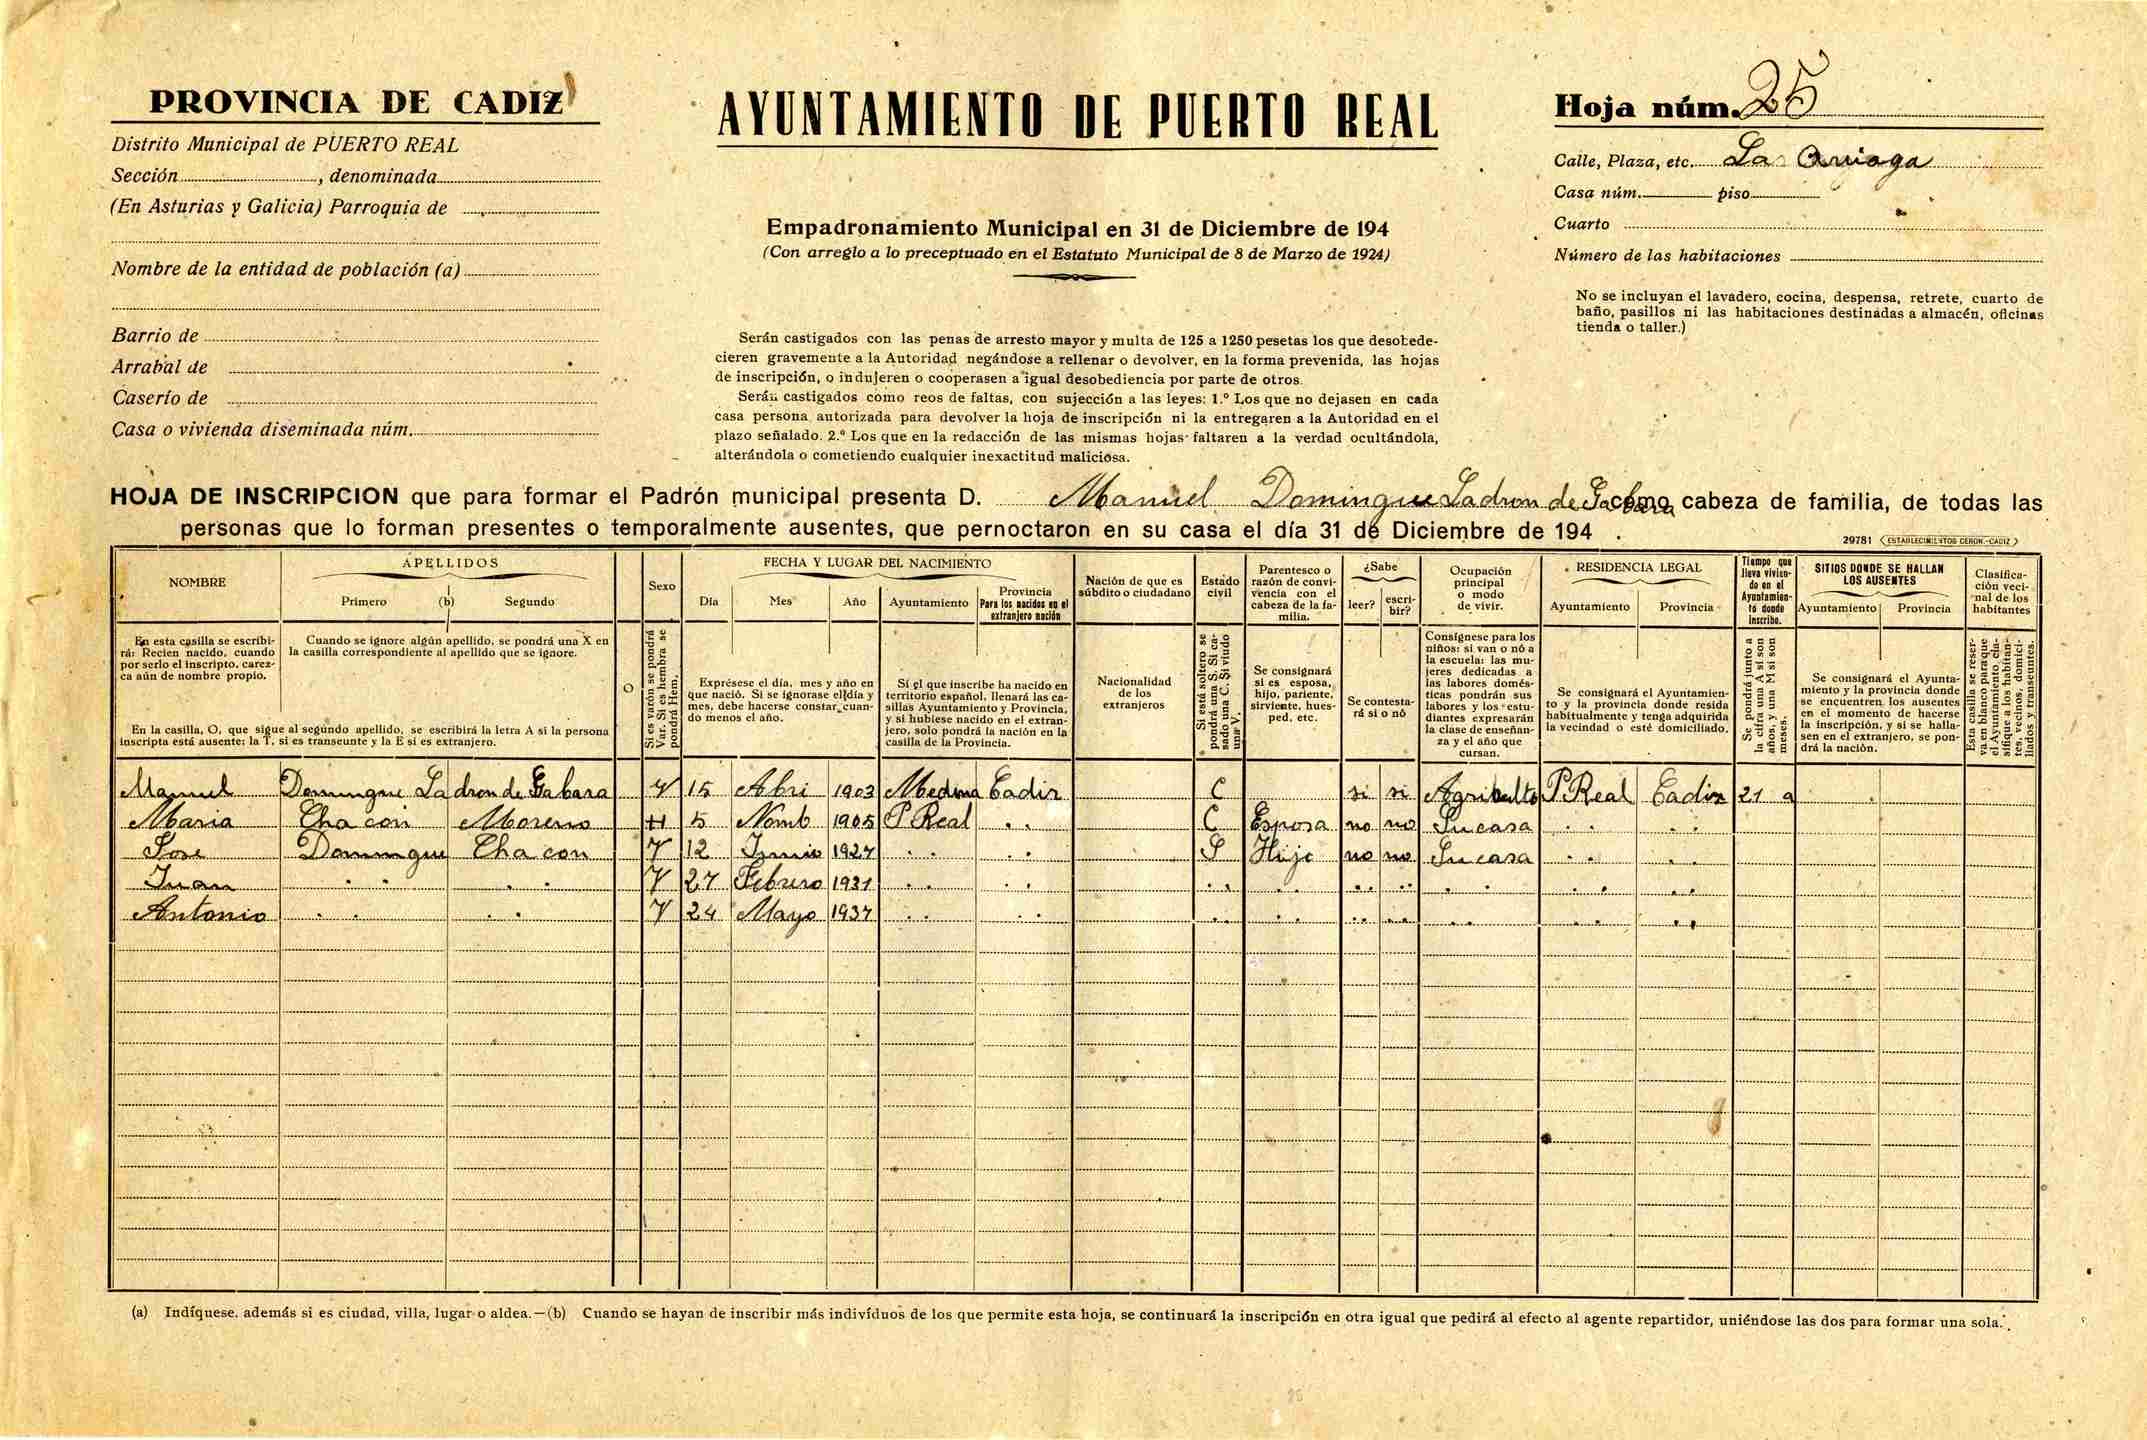 PROVINCIA DE CADIZ
Distrito Municipal de PUERTO REAL
Sección , denominada
(En Asturias y Galicia) Parroquia de
Nombre de la entidad de población (a)
Barrio de
Arrabal de
Caserío de
Casa o vivienda diseminada núm.
AYUNTAMIENTO DE PUERTO REAL
Empadronamiento Municipal en 31 de Diciembre de 194
(Con arreglo a lo preceptuado en el Estatuto Municipal de 8 de Marzo de 1924)
Serán castigados con las penas de arresto mayor y multa de 125 a 1250 pesetas los que desobede-
cieren gravemente a la Autoridad negándose a rellenar o devolver, en la forma prevenida, las hojas
de inscripción, o indujeren o cooperasen a igual desobediencia por parte de otros.
Serán castigados como reos de faltas, con sujección a las leyes: 1.º Los que no dejasen en cada
casa persona autorizada para devolver la hoja de inscripción ni la entregaren a la Autoridad en el
plazo señalado. 2.º Los que en la redacción de las mismas hojas faltaren a la verdad ocultándola,
alterándola o cometiendo cualquier inexactitud maliciosa.
Hoja núm. 25
Calle, Plaza, etc. La
Casa núm. piso
Cuarto
Número de las habitaciones
No se incluyan el lavadero, cocina, despensa, retrete, cuarto de
baño, pasillos ni las habitaciones destinadas a almacén, oficinas
tienda o taller.)
HOJA DE INSCRIPCION que para formar el Padrón municipal presenta D. Manuel Domingue Ladron de Gabara como cabeza de familia, de todas las
personas que lo forman presentes o temporalmente ausentes, que pernoctaron en su casa el día 31 de Diciembre de 194 .
29781 ESTABLECIMIENTOS CERON.-CADIZ
NOMBRE
En esta casilla se escribi-
rá: Recien nacido, cuando
por serlo el inscripto, carez-
ca aún de nombre propio.
APELLIDOS
Primero (b) Segundo
Cuando se ignore algún apellido, se pondrá una X en
la casilla correspondiente al apellido que se ignore.
En la casilla, O, que sigue al segundo apellido, se escribirá la letra A si la persona
inscripta está ausente; la T, si es transeunte y la E si es extranjero.
O
Sexo
Si es varón se pondrá
Var. Si es hembra se
pondrá Hem.
FECHA Y LUGAR DEL NACIMIENTO
Día Mes Año Ayuntamiento Provincia
Para los nacidos en el
extranjero nación
Exprésese el día, mes y año en
que nació. Si se ignorase el día y
mes, debe hacerse constar cuan-
do menos el año.
Si el que inscribe ha nacido en
territorio español, llenará las ca-
sillas Ayuntamiento y Provincia,
y si hubiese nacido en el extran-
jero, solo pondrá la nación en la
casilla de la Provincia.
Nación de que es
súbdito o ciudadano
Nacionalidad
de los
extranjeros
Estado
civil
Si está soltero se
pondrá una S. Si ca-
sado una C. Si viudo
una V.
Parentesco o
razón de convi-
vencia con el
cabeza de la fa-
milia.
Se consignará
si es esposa,
hijo, pariente,
sirviente, hues-
ped, etc.
¿Sabe
leer? escri-
bir?
Se contesta-
rá si o nó
Ocupación
principal
o modo
de vivir.
Consígnese para los
niños: si van o nó a
la escuela: las mu-
jeres dedicadas a
las labores domés-
ticas pondrán sus
labores y los estu-
diantes expresarán
la clase de enseñan-
za y el año que
cursan.
RESIDENCIA LEGAL
Ayuntamiento Provincia
Se consignará el Ayuntamien-
to y la provincia donde resida
habitualmente y tenga adquirida
la vecindad o esté domiciliado.
Tiempo que
lleva vivien-
do en el
Ayuntamien-
to donde
inscribe.
Se pondrá junto a
la cifra una A si son
años, y una M si son
meses.
SITIOS DONDE SE HALLAN
LOS AUSENTES
Ayuntamiento Provincia
Se consignará el Ayunta-
miento y la provincia donde
se encuentren los ausentes
en el momento de hacerse
la inscripción, y si se halla-
sen en el extranjero, se pon-
drá la nación.
Clasifica-
ción veci-
nal de los
habitantes
Esta casilla se reser-
va en blanco para que
el Ayuntamiento, cla-
sifique a los habitan-
tes, vecinos, domici-
liados y transeuntes.
Manuel Domingue Ladron de Gabara V 15 Abri 1903 Medina Cadiz C si si Agriculto P Real Cadiz 21 a
Maria Chacon Moreno H 5 Nomb 1905 P Real . . C Esposa no no Su casa . . . .
Jose Domingue Chacon V 12 Junio 1927 . . . . S Hijo no no Su casa . . . .
Juan . . . . V 27 Febrero 1931 . . . . . . . . . . . . . . . .
Antonio . . . . V 24 Mayo 1937 . . . . . . . . . . . . . . . .
(a) Indíquese. además si es ciudad, villa, lugar o aldea.—(b) Cuando se hayan de inscribir más indivíduos de los que permite esta hoja, se continuará la inscripción en otra igual que pedirá al efecto al agente repartidor, uniéndose las dos para formar una sola.